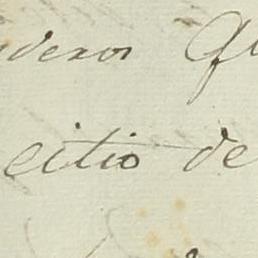 deros Qu
citio de